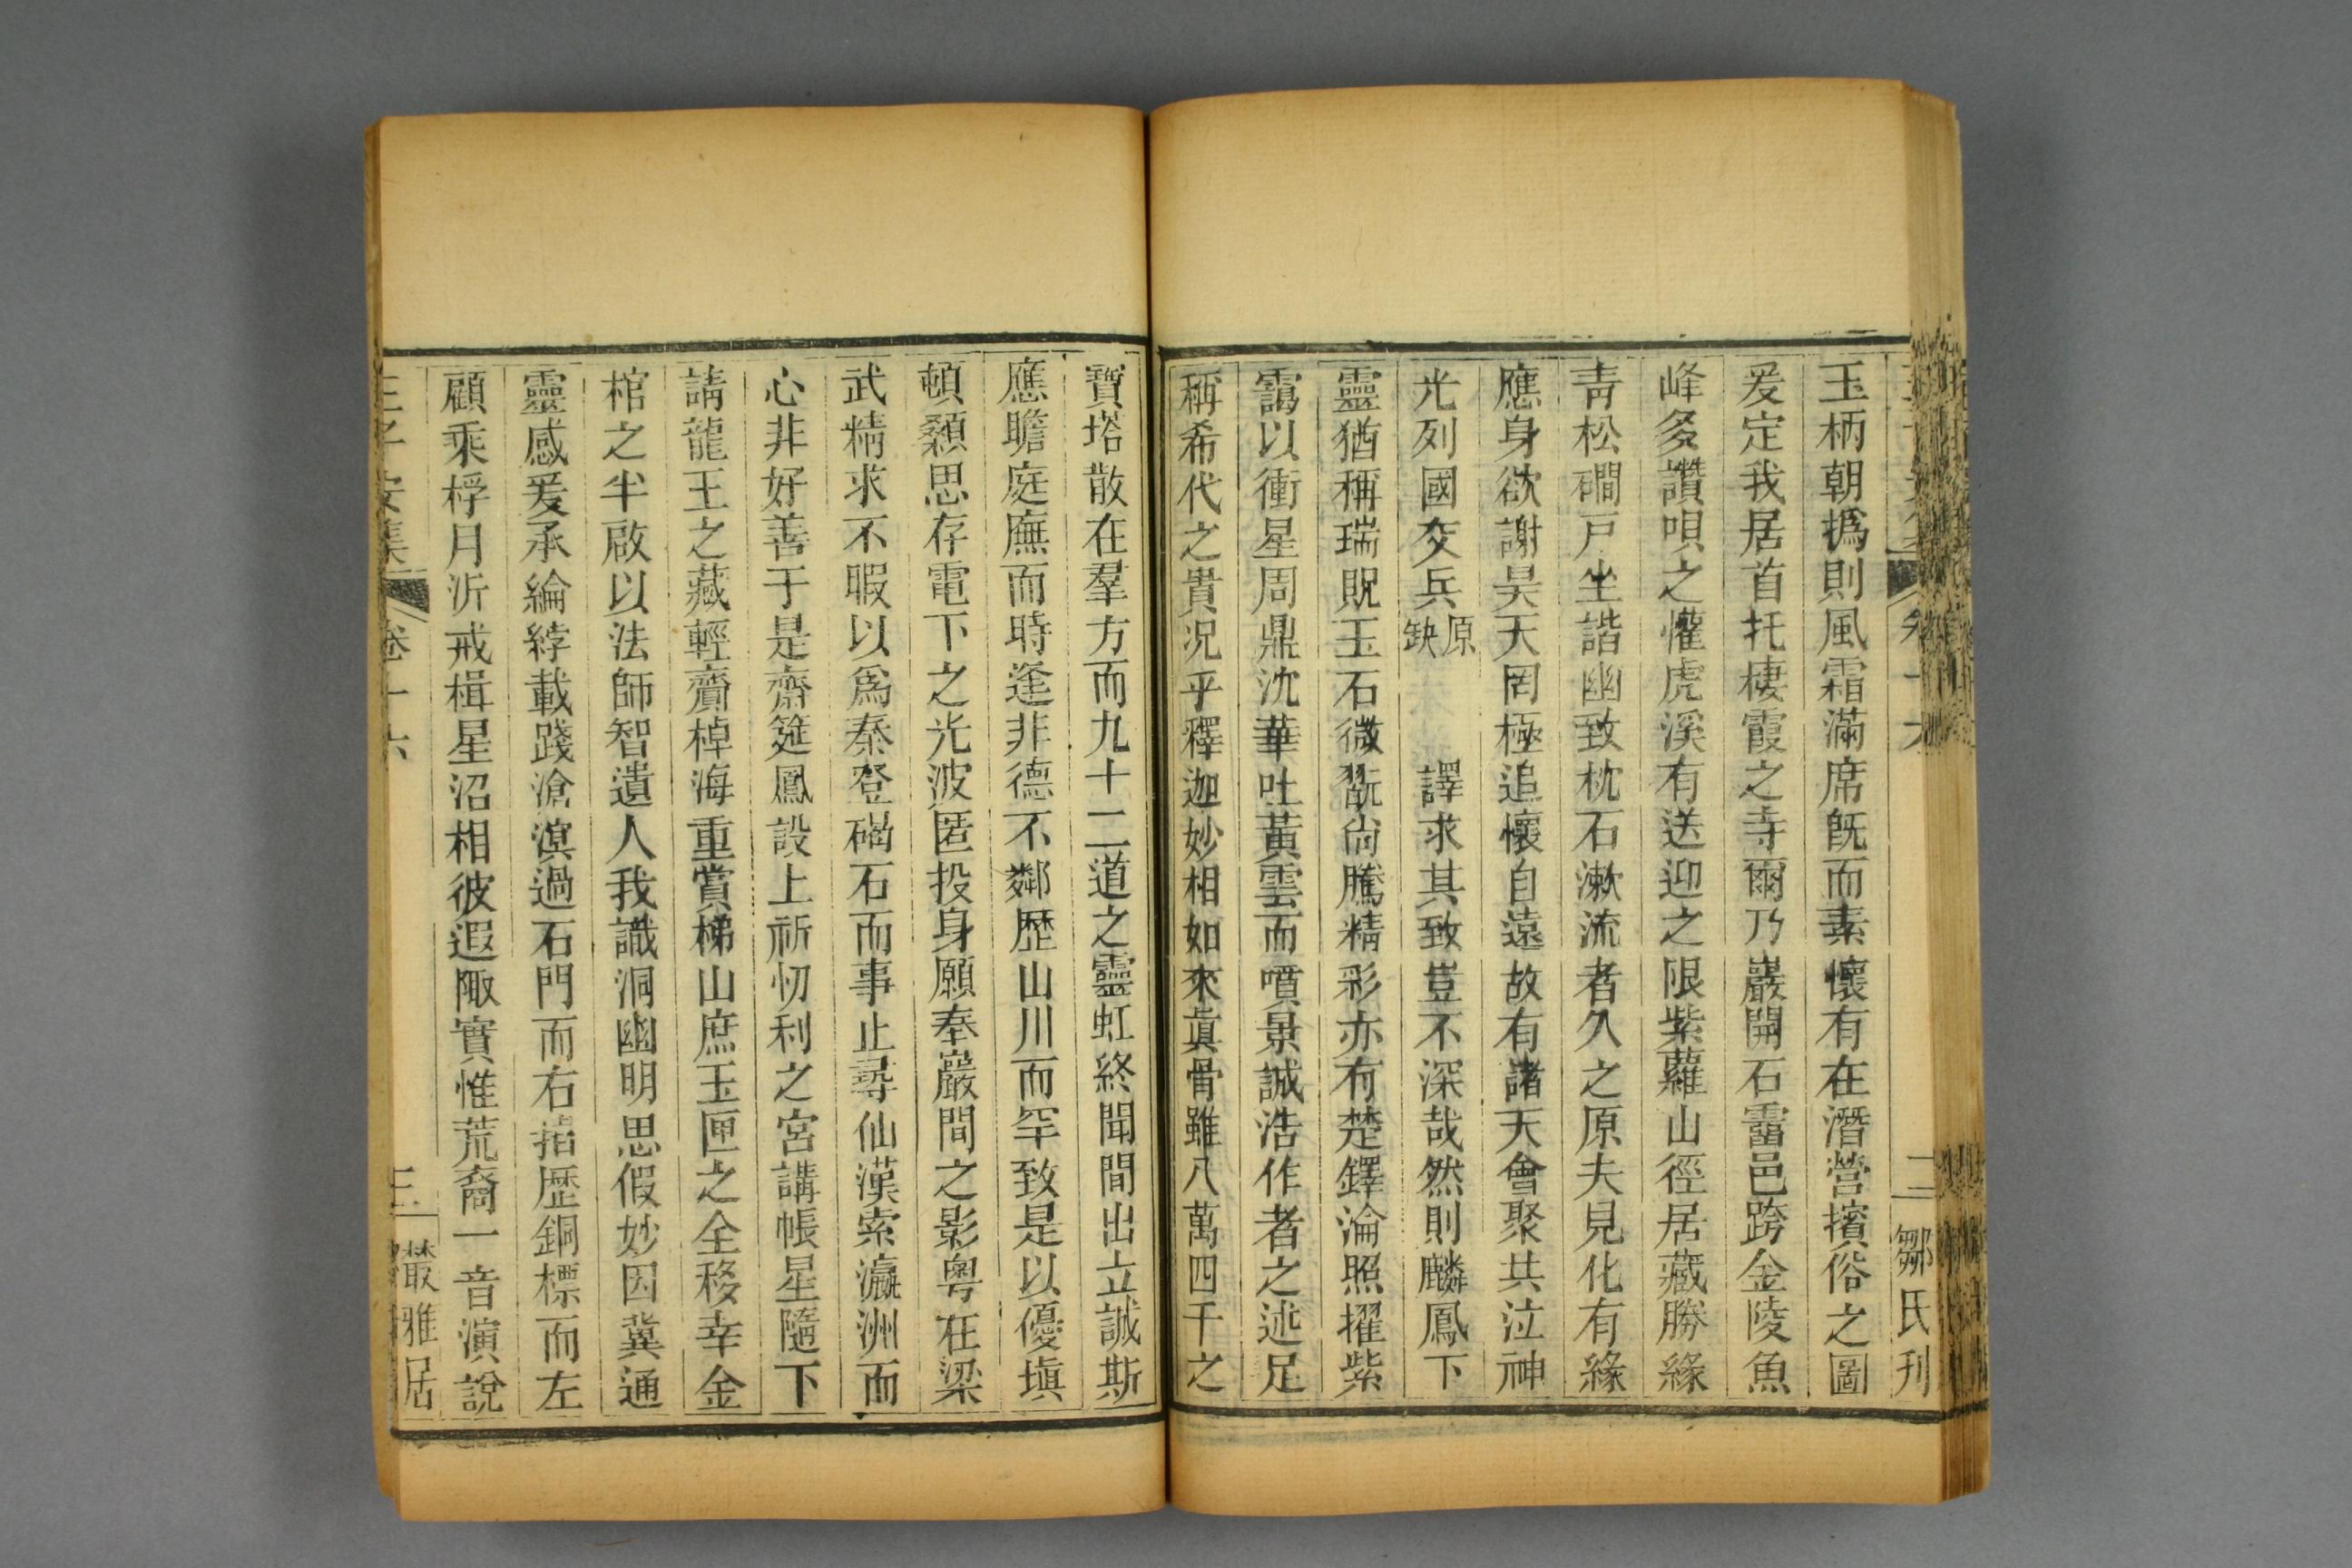 玉柄朝撝則風霜滿席旣而素懷有在潛營擯俗之圖
爰定我居首托棲霞之寺爾乃巖開石霤邑跨金陵魚
峰多讚唄之懽虎溪有送迎之限紫蘿山徑居藏勝緣
靑松磵戸坐諧幽致枕石漱流者久之原夫見化有緣
應身欲謝昊天罔極追懷自遠故有諸天會聚共泣神
光列國交兵原缺 譯求其致豈不深哉然則麟鳳下
靈猶稱瑞貺玉石微翫尙騰精彩亦有楚鐸淪照擢紫
靄以衝星周鼎沈華吐黃雲而噴景誠浩作者之述足
稱希代之貴况乎釋迦妙相如來眞骨雖八萬四千之
寶塔散在羣方而九十二道之靈虹終聞間出立誠斯
應瞻庭廡而時逢非德不鄰歴山川而罕致是以優塡
頓顙思存電下之光波匿投身願奉巖間之影粤在梁
武精求不暇以爲秦登碣石而事止尋仙漢索瀛洲而
心非好善于是齋筵鳳設上祈忉利之宮講帳星隨下
請龍王之藏輕齎棹海重賞梯山庶玉匣之全移幸金
棺之半啟以法師智遺人我識洞幽明思假妙因冀通
靈感爰承綸綍載踐滄溟過石門而右指歴銅標而左
顧乘桴月泝戒楫星沼相彼遐陬實惟荒裔一音演說
王子安集 卷十六 三 叢雅居
卷十六 二 鄒氏刋